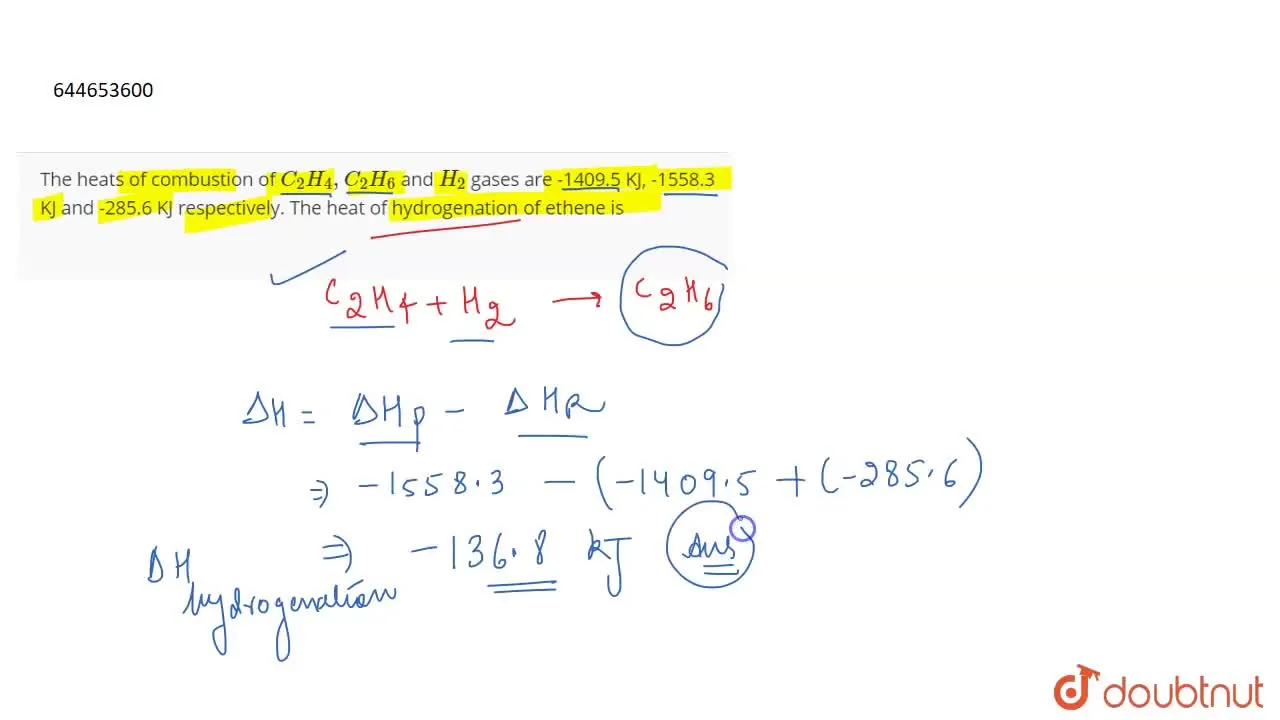 644653600
The heats of combustion of C₂H₄, C₂H₆ and H₂ gases are -1409.5 KJ, -1558.3
KJ and -285.6 KJ respectively. The heat of hydrogenation of ethene is
C₂H₄ + H₂ → C₂H₆
ΔH = ΔHp - ΔHR
⇒ -1558.3 - (-1409.5 + (-285.6)
ΔH hydrogenation ⇒ -136.8 kJ Ans
doubtnut